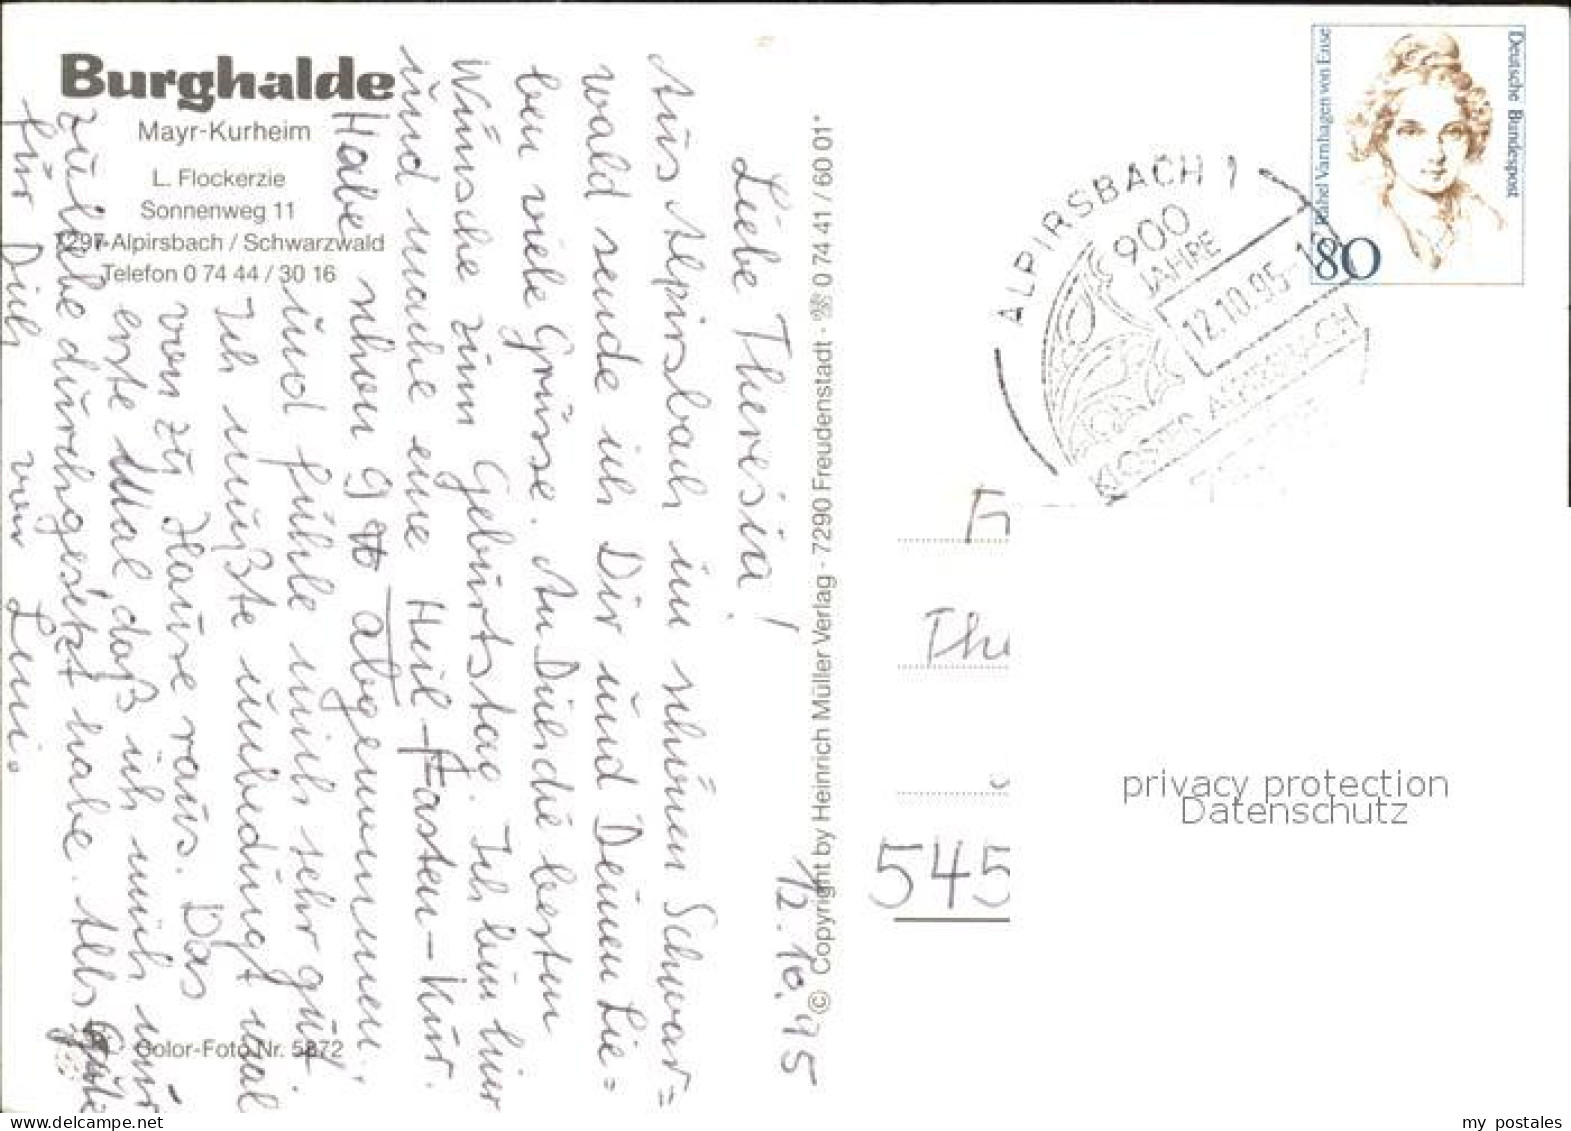 Burghalde
Mayr-Kurheim
L. Flockerzie
Sonnenweg 11
7297 Alpirsbach / Schwarzwald
Telefon 0 74 44 / 30 16
12.10.95
Liebe Theresia!
Aus Alpirsbach im schönen Schwar=
wald sende ich Dir und Deinen Lie=
ben viele Grüsse. An Dich die besten
Wünsche zum Geburtstag. Ich bin hier
und mache eine Heil-Fasten-Kur.
Habe schon 9 abgenommen.
und fühle mich sehr gut.
Ich mußte unbedingt mal
von zu Hause raus. Das
erste Mal, daß ich mich mir
zuliebe durchgesetzt habe. Alles Gute
für Dich von Leni.
Color-Foto Nr. 5872
© Copyright by Heinrich Müller Verlag - 7290 Freudenstadt - ☏ 0 74 41 / 60 01*
ALPIRSBACH 1
900
JAHRE
12.10.95-1
KLOSTER ALPIRSBACH
Rahel Varnhagen von Ense
Deutsche Bundespost
80
F
The
545
privacy protection
Datenschutz
www.delcampe.net
my_postales